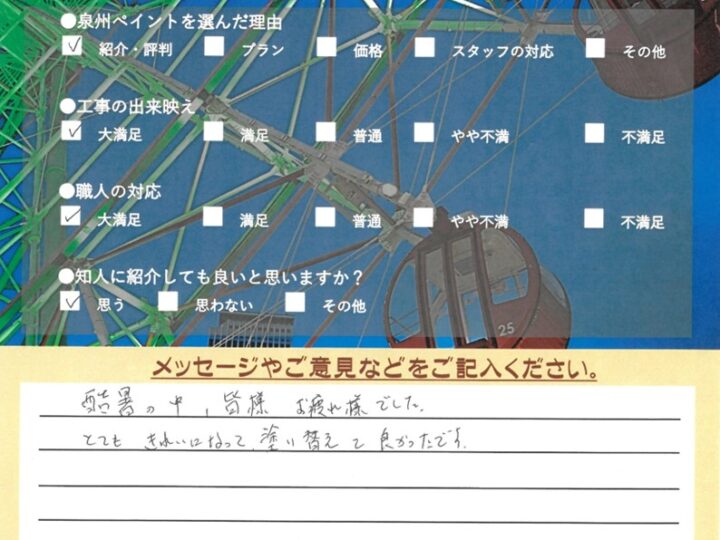 ●泉州ペイントを選んだ理由
☑ 紹介・評判 □ プラン □ 価格 □ スタッフの対応 □ その他
●工事の出来映え
☑ 大満足 □ 満足 □ 普通 □ やや不満 □ 不満足
●職人の対応
☑ 大満足 □ 満足 □ 普通 □ やや不満 □ 不満足
●知人に紹介しても良いと思いますか？
☑ 思う □ 思わない □ その他
25
メッセージやご意見などをご記入ください。
酷暑の中、皆様 お疲れ様でした。
とても きれいになって、塗り替えて良かったです。